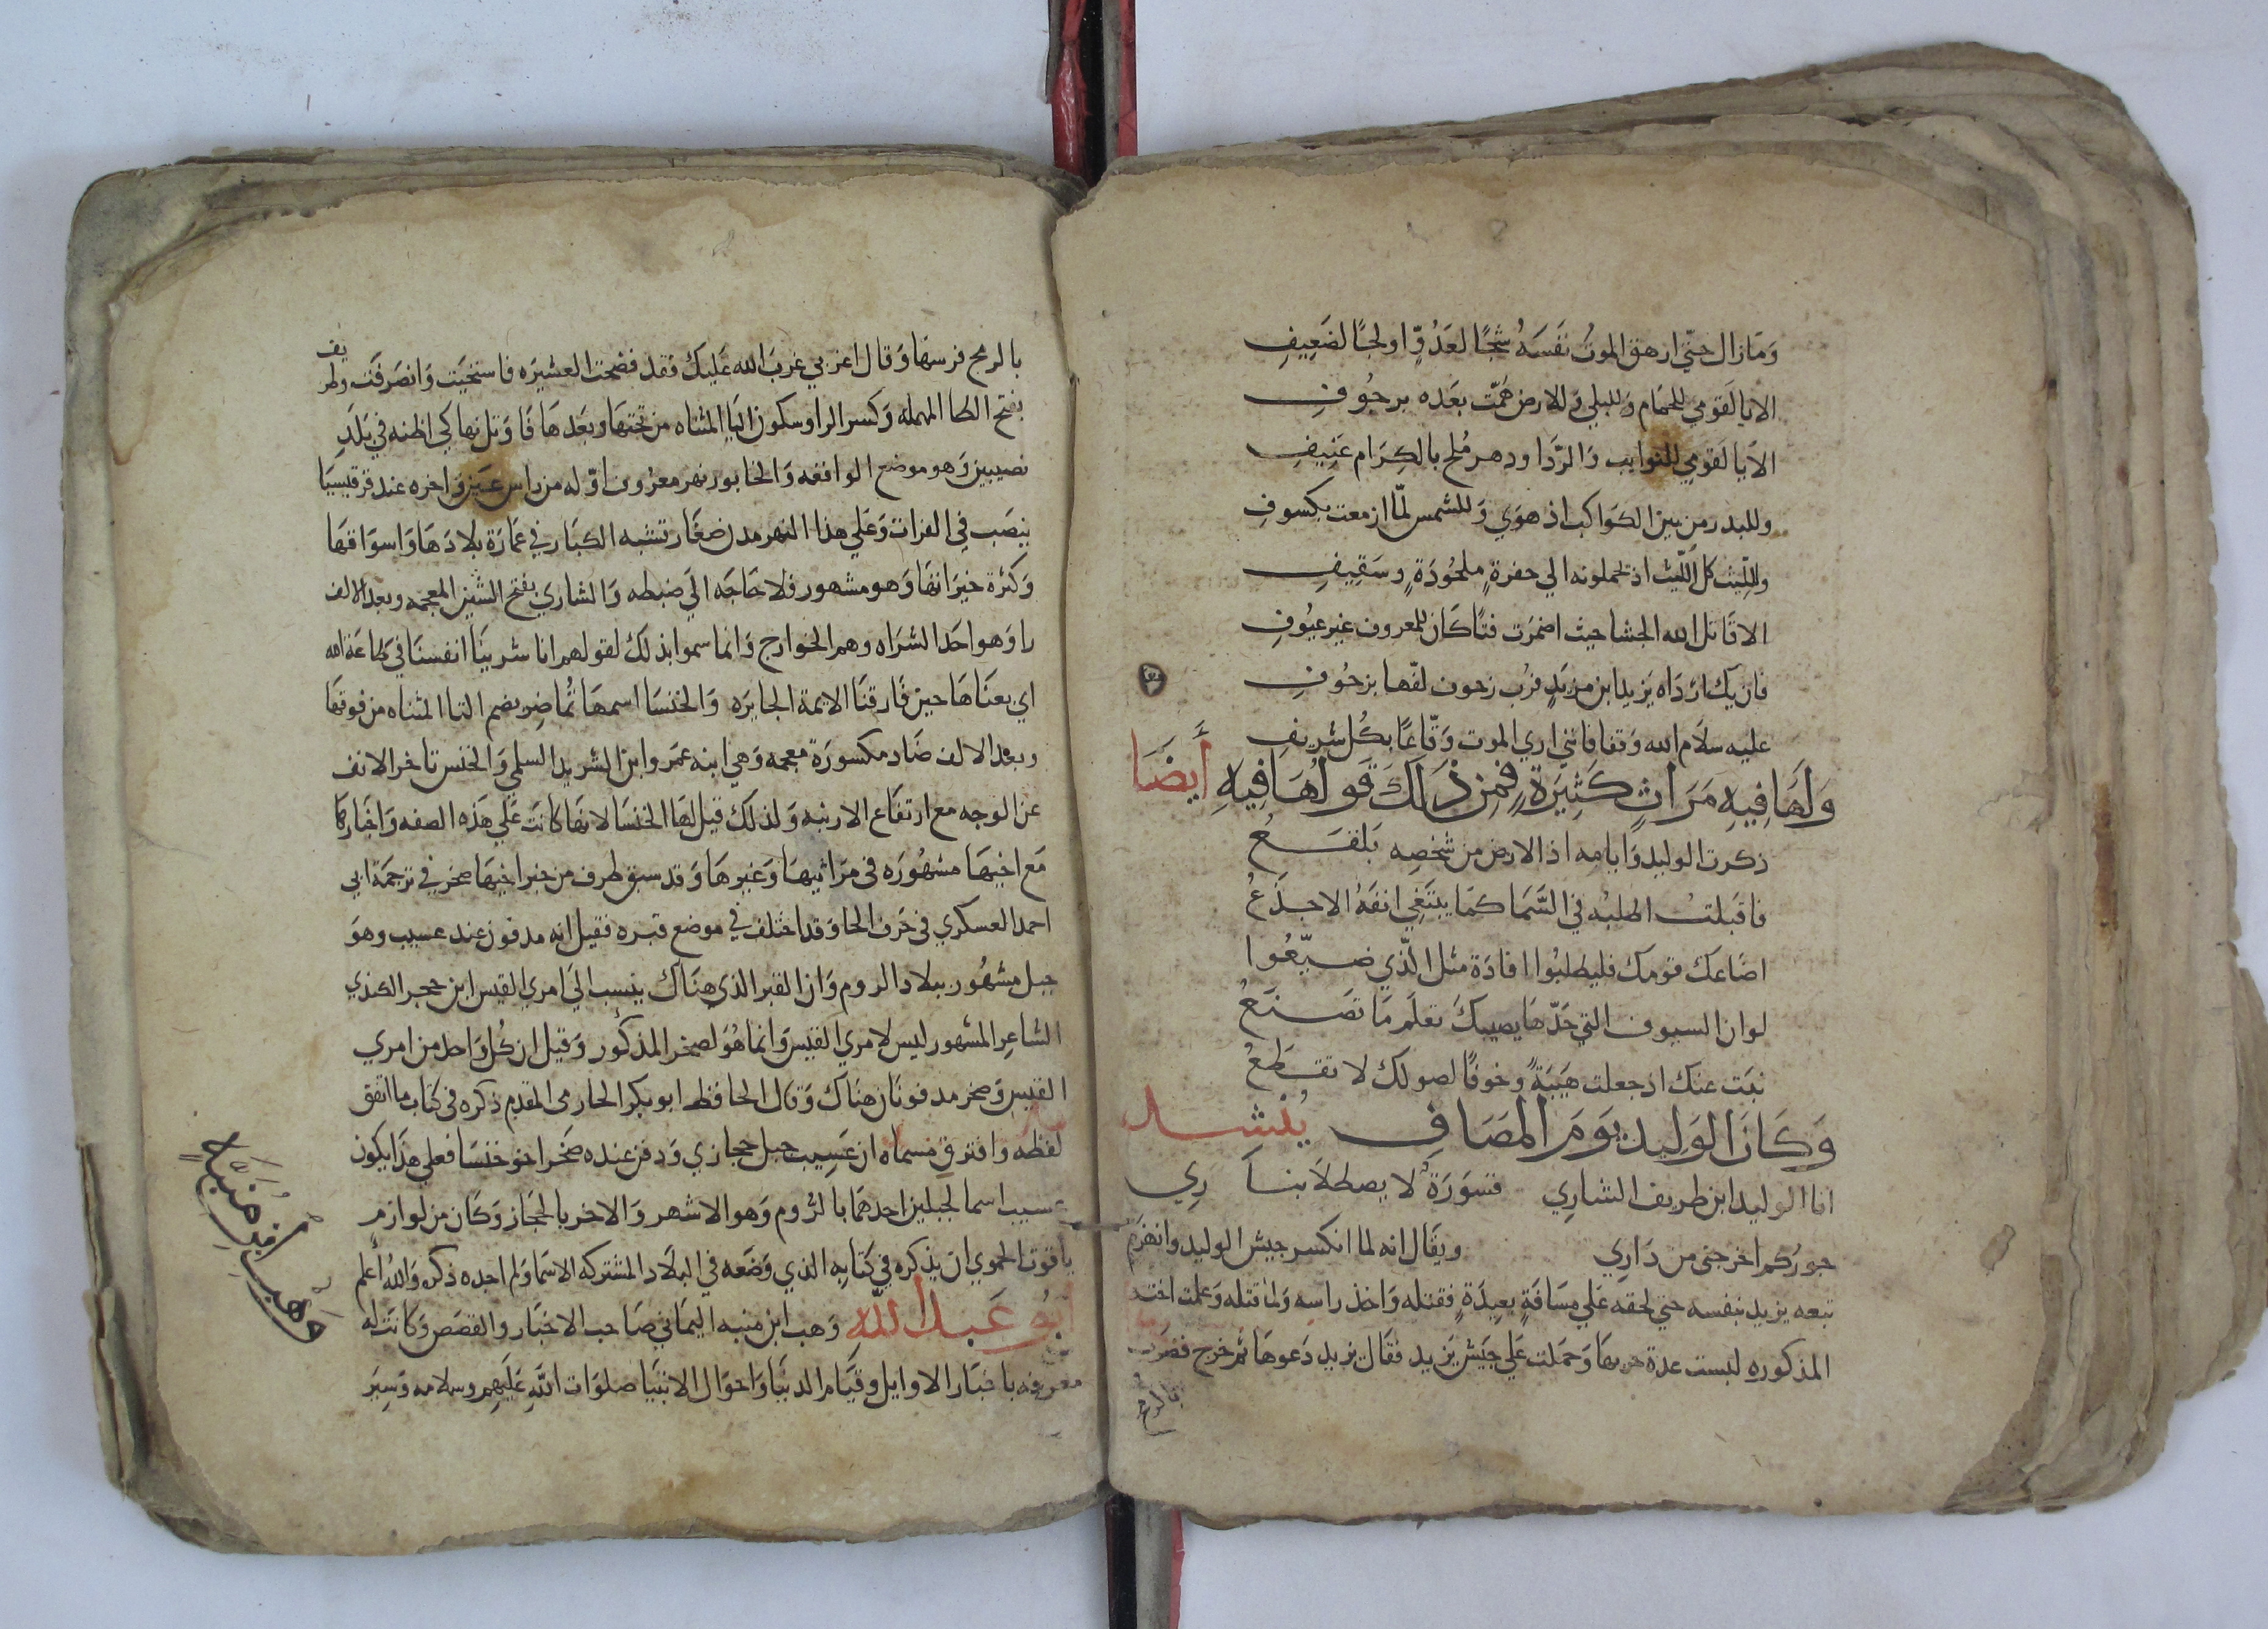 وَمَا زال حتّي ازهق الموتُ نفَسَهُ شجًا لعَدُوٍّ او لجًا لضَعِيفِ
الا يا لَقومي للحمَام وَللبلي وَللارض هَمّت بعَده برجُوفِ
الا يا لَقومي للنوايب وَالرَّدَا ودهر مُلح بالكِرَام عَنِيفِ
وللبدر من بين الكوَاكب اذ هوَي وَللشمس لمّا ازمعت بكسوفِ
وللّيث كل اللّيث اذ يحملونه الي حفرةٍ ملحُودَةٍ وسَقِيفِ
الا قاتل الله الجشا حيث اضمرَت فتًا كَان للمعروف غير عيُوفِ
فان يك ارْدَاه يزيد ابن مزيَدٍ فرُب زحوف لفّها بزحُوفِ
عليه سلَام الله وَقفا فانني اري الموت وَقّاعًا بكُل شريفِ
وَلَهَا فِيهِ مَرَاثٍ كَثِيرَةٍ فمِن ذَلَكَ قَولُهَا فِيهِ أَيضَا
ذكرت الوليد وَايامه اذ الارض من شخصِه بَلقَعُ
فاقبَلتُ اطلبُه في السَّمَا كمَا يبتَغِي انفَهُ الاجدَعُ
اضَاعَك قومك فليطلبُوا افادَة مثل الّذي ضيّعُوا
لو ان السيوف التي حَدّهَا يصيبكَ تعلَم مَا تصنَعُ
نبَت عنك اذ جعلت هَيَبَةً وخوفًا لصولك لا تقطَعُ
وَكَانَ الوَلِيد يَومَ المَصَافِ يُنْشد
انا الوليد ابن طريف الشارِي قسَوَرَةٌ لا يصطلَا بنَارِي
جورُكم اخرجني من دَارِي ويقَال انه لما انكسر جيش الوليد وانهزم
تبعه يزيد بنفسه حتي لحقه عَلي مسَافَةٍ بعِيدَةٍ فقتله وَاخذ راسه وَلما قتله وَعلمت اخته
المذكوره لبست عدة حربهَا وَحمَلت عَلي جَيش يَزيد فقَال يزيد دَعوهَا ثم خرج فضرَب
بالرمح
بالرمح فرسهَا وَقال اغربي غربَ الله عَليك فقد فضحت العشيَره فاستحيَت وَانصَرفَت وطريف
بفتح الطا المهمله وَكسر الرا وسكون اليَا المثناه من تحتهَا وبعَدهَا فا وَتل نهاكي اظنه في بَلَدِ
نصيبين وَهو موضع الواقعه وَالخابور نهر معرُوف اوّله من راس عَين وَاخره عند قرقيسيَا
ينصَب في الفرات وَعَلي هذا النهر مدن صغَار تشبه الكبَار في عمَارَة بلادَهَا وَاسوَاقهَا
وَكثرة خيرَاتهَا وَهو مشهور فلا حَاجَه الَي ضبطه وَالشاري بفتح الشين المعجمه وبعد الالف
را وَهو احَد الشرَاه وهم الخوارج وَانما سموا بذلك لقولهم انا شرينَا انفسنَا في طاعَة الله
اي بعنَاهَا حين فارقنَا الايمة الجايرَه وَالخنسَا اسمهَا تُماضِر بضم التا المثناه من فوقهَا
وبعَد الالف ضَاد مكسورَة معجمه وَهي ابنه عمَرو ابن الشريد السلمي وَالخنس تاخر الانف
عن الوجه مع ارتفَاع الارنبه وَلذلك قيل لهَا الخنسَا لانهَا كانَت عَلي هَذه الصفه وَاخبَارهَا
مَع اخيهَا مشهُورَه في مَراثيهَا وَغيرهَا وَقد سبق طرف من خبر اخيهَا صخر في ترجمَة ابي
احمد العسكري في حَرف الحا وَقد اختلف في موضع قبره فقيل انه مدفون عند عسيب وهوَ
جبل مشهُور ببلاد الروم وَان القبر الذي هنَاك ينسب الَي امري القيس ابن حجر الكندي
الشاعر المشهور ليس لامري القيس وَانما هُوَ لصخر المذكور وَقيل ان كُل وَاحد من امري
القيس وَصخر مدفونَان هنَاك وَقال الحافظ ابو بكر الحازمي المقدم ذكره في كتاب ما اتفق
لفظه وافترق مسماه ان عَسِيب جبل حجازي وَدفن عنده صَخر اخو خنسَا فعلي هَذَا يكون
عسيب اسما لجبلين احدهمَا بالرُوم وَهو الاشهر وَالاخر بالحجَاز وَكَان من لوازم
ياقوت الحموي ان يذكره في كتابه الذي وَضَعه في البلَاد المشتركه الاسمَا وَلم اجده ذكره وَاللهُ اعلم
أبُو عَبد الله وَهب ابن منبه اليمَاني صَاحب الاخبَار والقصَص وَكَانَت له
معرفه باخبَار الاوايل وَقيَام الدنيَا وَاحوَال الانبيَا صلوَات اللَه عَليهِم وسلامه وَسِيَر
وَهْبُ ابْن مُنَبِّهٍ